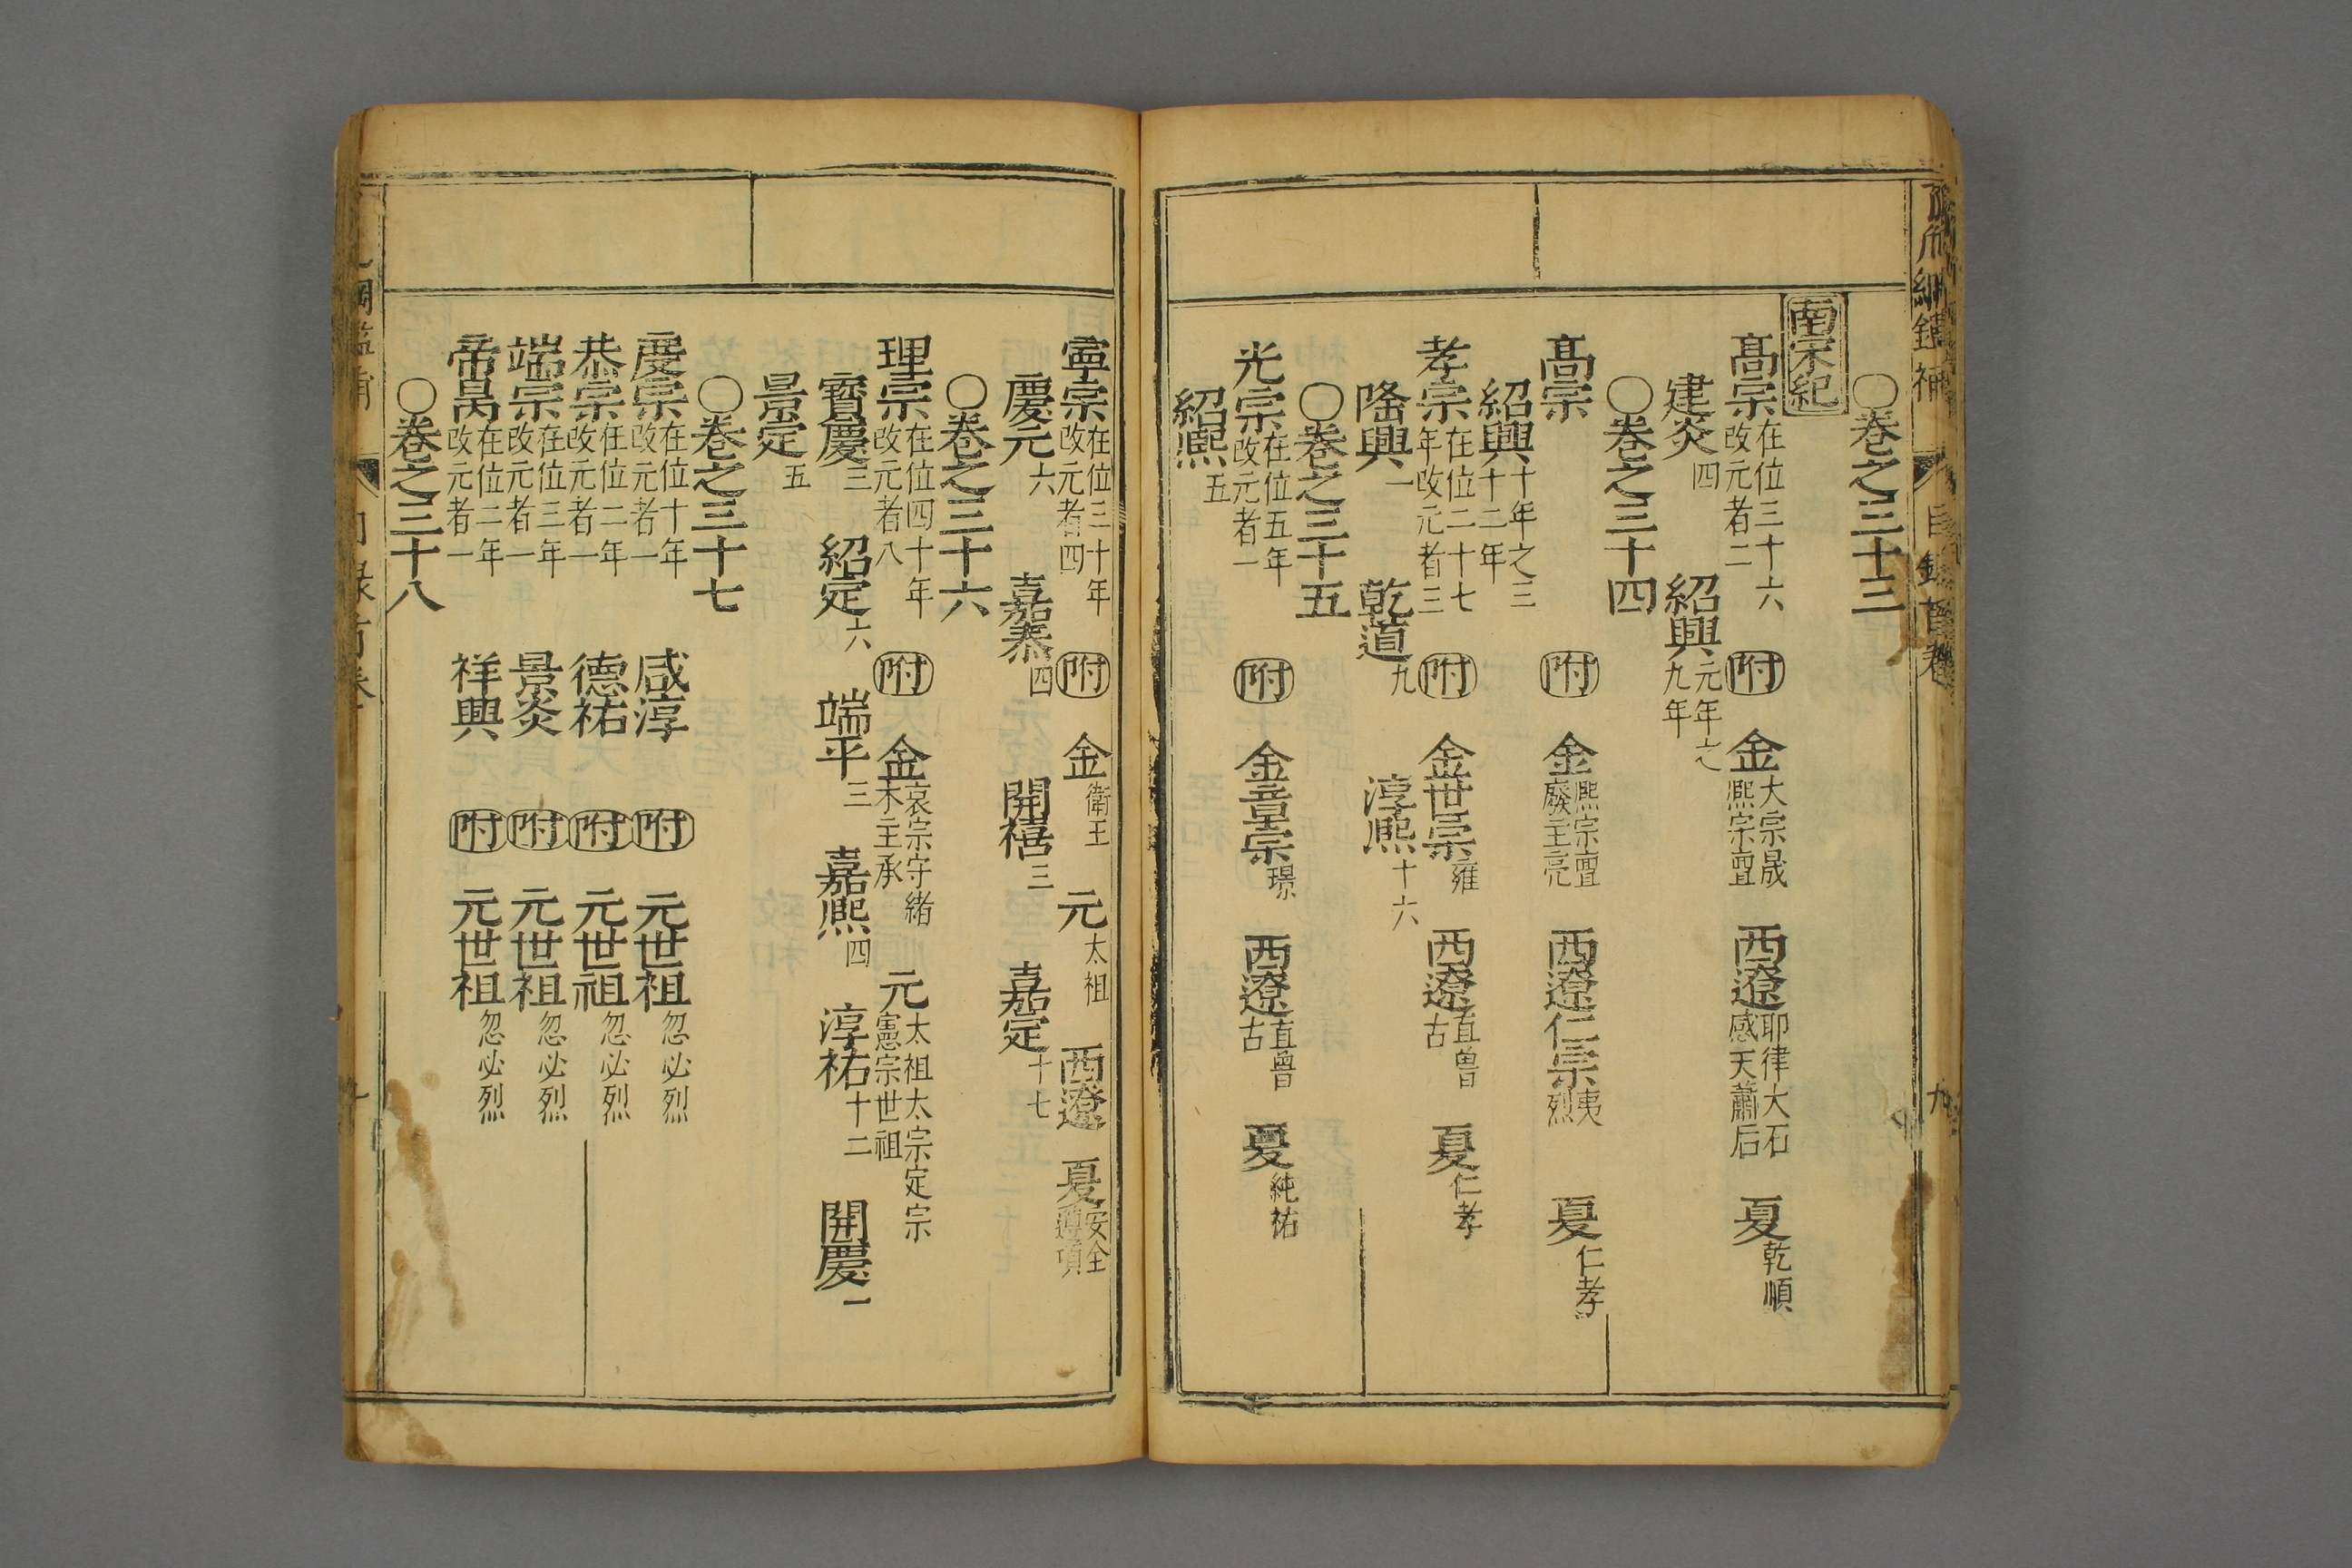 ○卷之三十三
南宋紀
髙宗在位三十六改元者二 附 金大宗晟熈宗亶 西遼耶律大石感天蕭后 夏乾順
建炎四 紹興元年之九年
○卷之三十四
髙宗 附 金熈宗亶廢主亮 西遼仁宗夷烈 夏仁孝
紹興十年之三十二年
孝宗在位二十七年改元者三 附 金世宗雍 西遼直曾古 夏仁孝
隆興一 乾道九 淳熈十六
○卷之三十五
光宗在位五年改元者一 附 金章宗璟 西遼直曾古 夏純祐
紹熈五
寧宗在位三十年改元者四 附 金衛王 元太祖 西遼 夏安全遵項
慶元六 嘉泰四 開禧三 嘉定十七
○卷之三十六
理宗在位四十年改元者八 附 金哀宗守緒末主承 元太祖太宗定宗憲宗世祖
寳慶三 紹定六 端平三 嘉熈四 淳祐十二 開慶一
景定五
○卷之三十七
慶宗在位十年改元者一 咸淳 附 元世祖忽必烈
恭宗在位二年改元者一 德祐 附 元世祖忽必烈
端宗在位三年改元者一 景炎 附 元世祖忽必烈
帝昺在位二年改元者一 祥興 附 元世祖忽必烈
○卷之三十八
目錄首卷 九